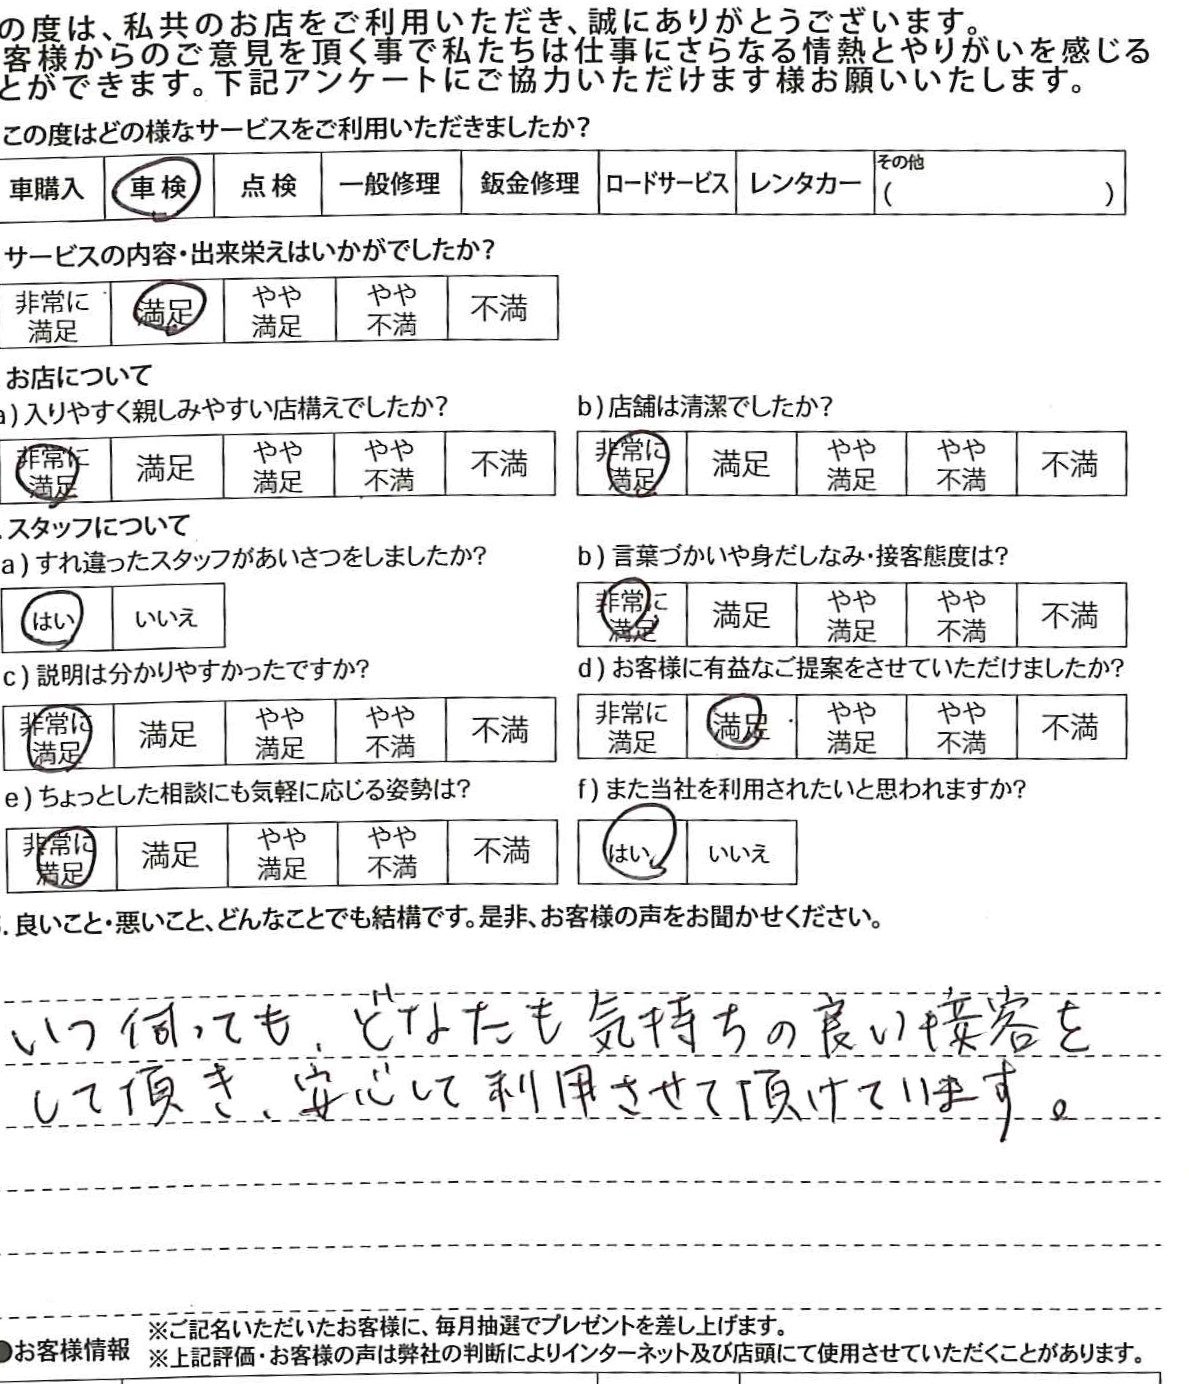 の度は、私共のお店をご利用いただき、誠にありがとうございます。
客様からのご意見を頂く事で私たちは仕事にさらなる情熱とやりがいを感じる
とができます。下記アンケートにご協力いただけます様お願いいたします。
この度はどの様なサービスをご利用いただきましたか?
車購入 車検 点検 一般修理 鈑金修理 ロードサービス レンタカー その他 ( )
サービスの内容・出来栄えはいかがでしたか?
非常に満足 満足 やや満足 やや不満 不満
お店について
a)入りやすく親しみやすい店構えでしたか? b)店舗は清潔でしたか?
非常に満足 満足 やや満足 やや不満 不満 非常に満足 満足 やや満足 やや不満 不満
.スタッフについて
a)すれ違ったスタッフがあいさつをしましたか? b)言葉づかいや身だしなみ・接客態度は?
はい いいえ 非常に満足 満足 やや満足 やや不満 不満
c)説明は分かりやすかったですか? d)お客様に有益なご提案をさせていただけましたか?
非常に満足 満足 やや満足 やや不満 不満 非常に満足 満足 やや満足 やや不満 不満
e)ちょっとした相談にも気軽に応じる姿勢は? f)また当社を利用されたいと思われますか?
非常に満足 満足 やや満足 やや不満 不満 はい いいえ
. 良いこと・悪いこと、どんなことでも結構です。是非、お客様の声をお聞かせください。
いつ伺っても、どなたも気持ちの良い接客を
して頂き、安心して利用させて頂けています。
●お客様情報 ※ご記名いただいたお客様に、毎月抽選でプレゼントを差し上げます。
※上記評価・お客様の声は弊社の判断によりインターネット及び店頭にて使用させていただくことがあります。